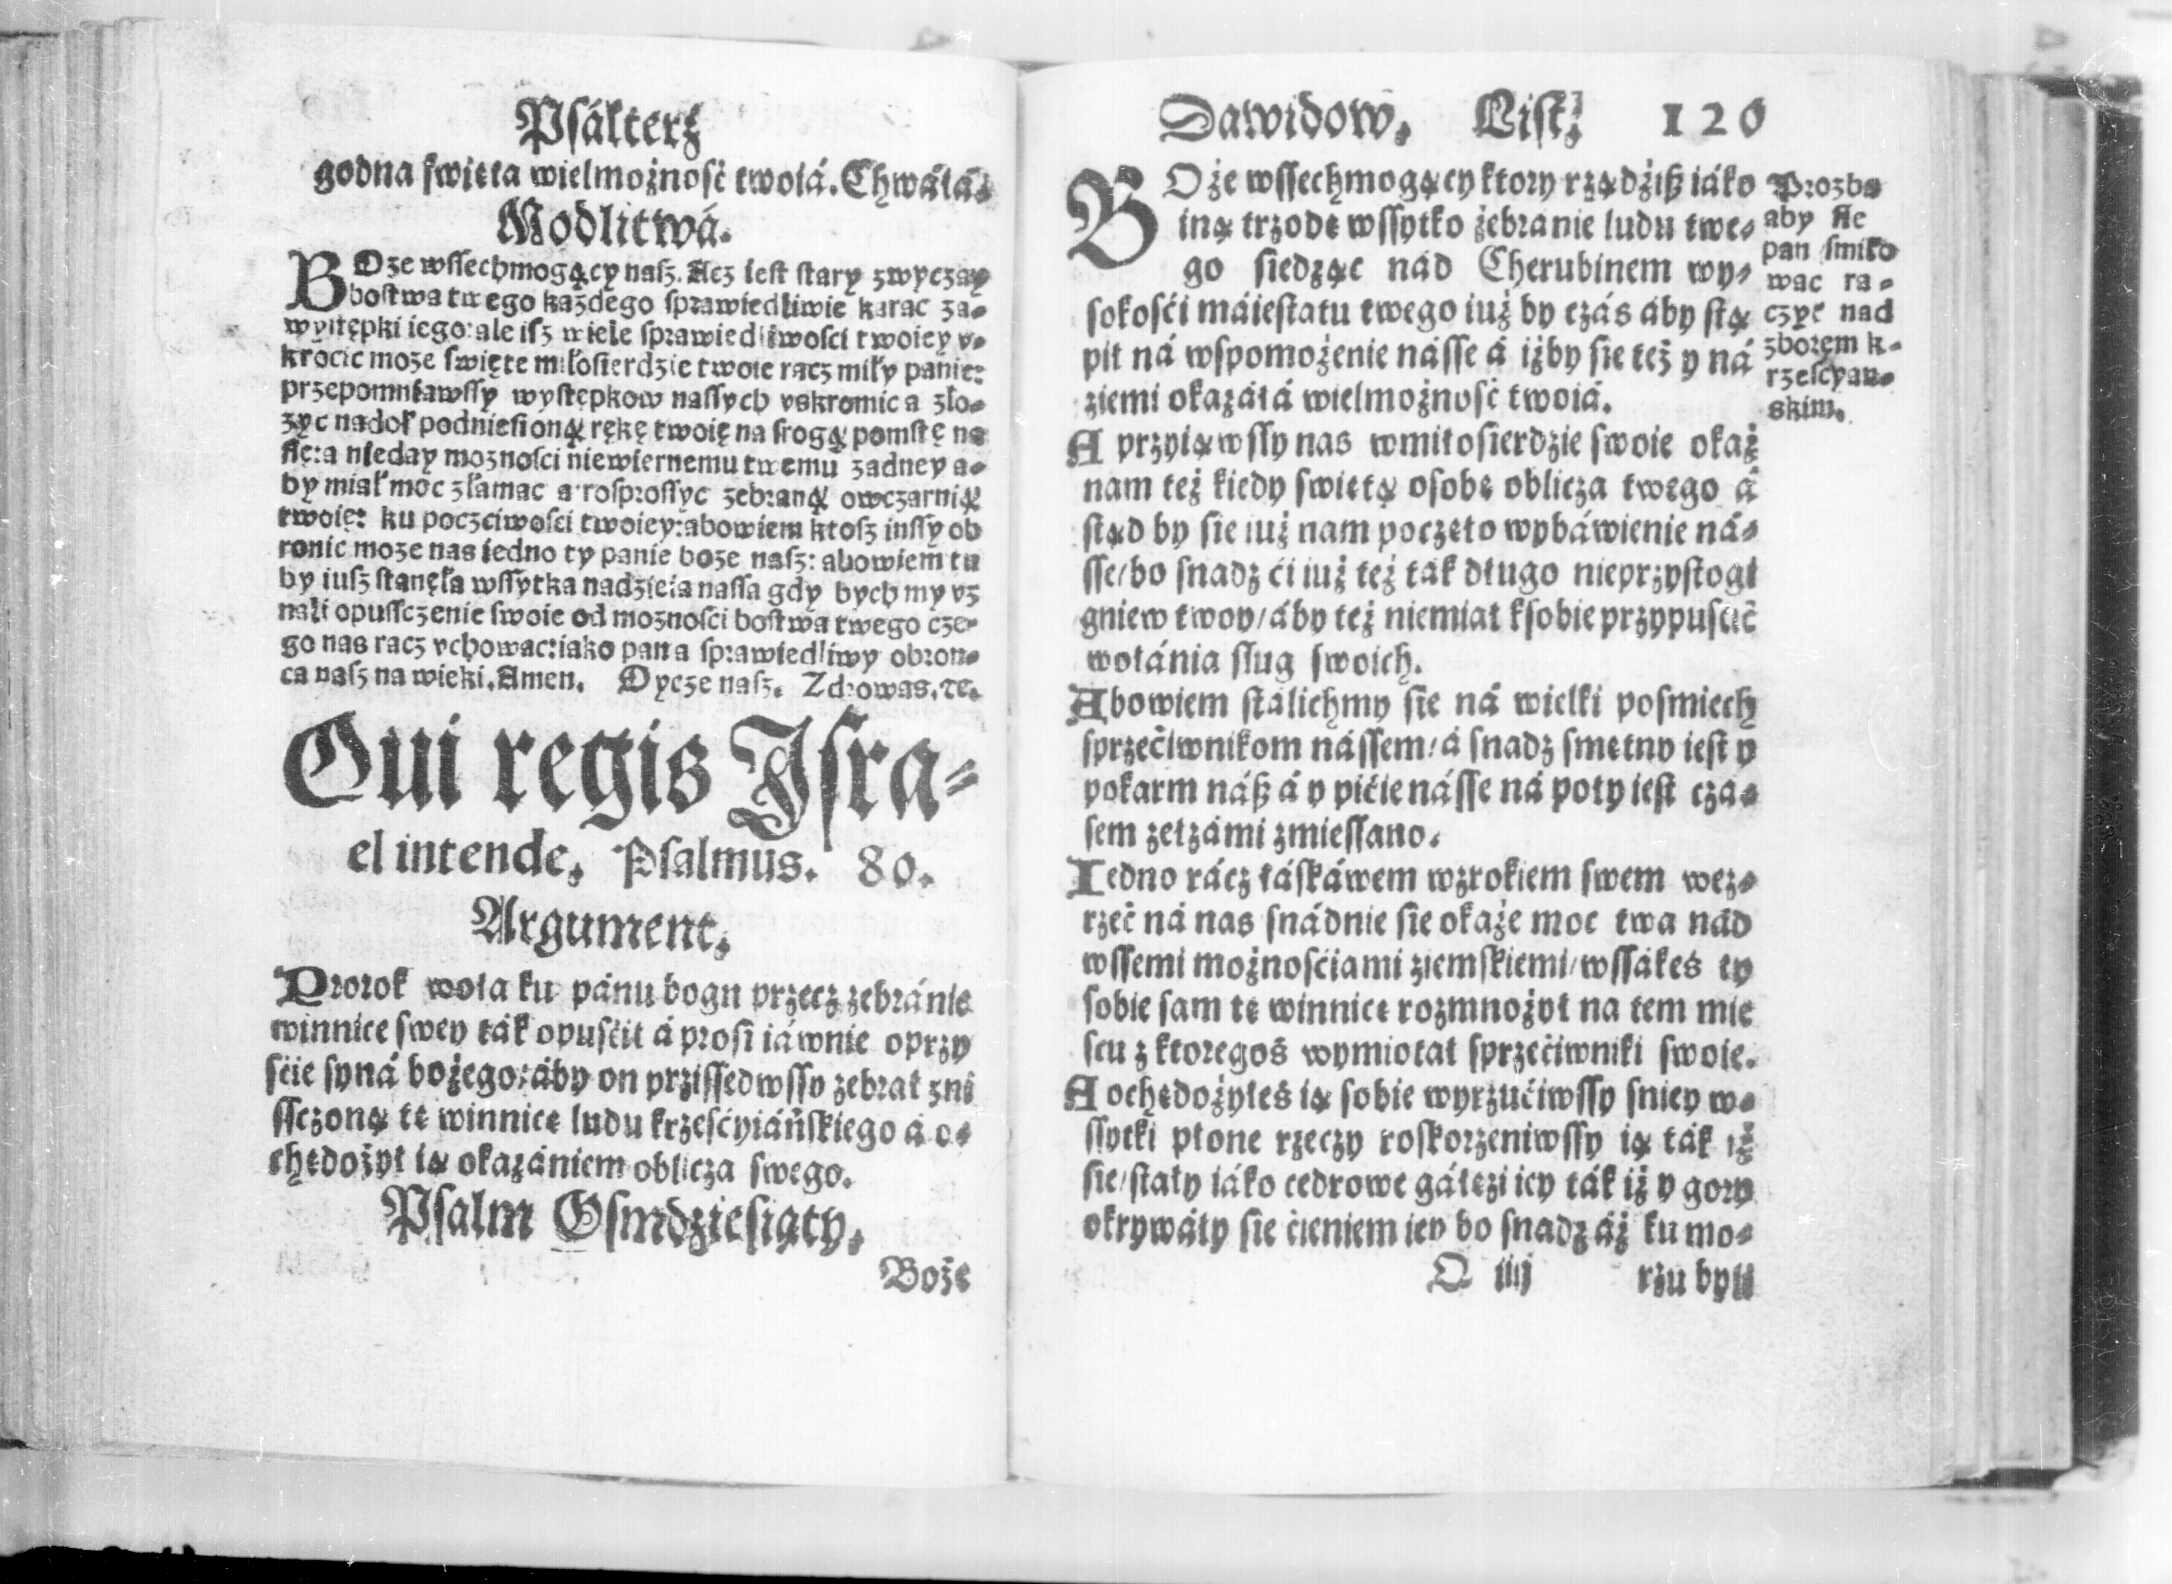 Psálterż
godna ſwięta wielmożnosć twoiá. Chwałá.
Modlitwá.
BOże wſſechmogący naſz. Acz ieſt ſtary zwyczay
boſtwa twego każdego ſprawiedliwie karac za-
wyſtępki iego: ale iſz wiele ſprawiedliwoſci twoiey v-
krocic moze ſwięte miłoſierdzie twoie racz miły panie:
przepomniawſſy wyſtępkow naſſych vskromic a zło-
zyc nadoł podnieſioną rękę twoię na ſrogą pomſtę na
ſię: a nieday moznoſci niewiernemu twemu zadney a-
by miał moc złamac a roſproſſyc zebraną owczarnią
twoię: ku poczciwoſci twoiey: abowiem ktoſz inſſy ob
ronic moze nas iedno ty panie boze naſz: abowiem tu
by iuſz ſtanęła wſſytka nadzieia naſſa gdy bych my vz
nali opuſſczenie ſwoie od moznoſci boſtwa twego cze-
go nas racz vchowac: iako pan a ſprawiedliwy obron-
ca naſz na wieki. Amen. Oycze naſz. Zdrowas. ꝛc.
Qui regis Iſra-
el intende, Pſalmus. 80.
Argument.
Prorok woła ku pánu bogu przecz zebránie
winnice swey ták opuśćił á prosi iáwnie oprzy
śćie syná bożego: áby on prziſſedwſſy zebrał zni
ſſczoną tę winnicę ludu krześćyiáńſkiego á o-
chędożył ią okazániem oblicza swego.
Psalm Osmdziesiąty.
Boże
Dawidow. List. 120
BOże wſſechmogący ktory rządźiß iáko
iną trzodę wſſytko żebranie ludu twe-
go siedząc nád Cherubinem wy-
sokośći máieſtatu twego iuż by czás áby ſtą
pił ná wspomożenie náſſe á iżby się też y ná
ziemi okazáłá wielmożnosć twoiá.
A przyiąwſſy nas wmiłosierdzie swoie okaż
nam też kiedy swiętą osobę oblicza twego á
ſtąd by się iuż nam poczęło wybáwienie ná-
ſſe/ bo snadz ći iuż też ták długo nieprzyſtogł
gniew twoy/ áby też niemiał ksobie przypuśćić
wołánia sług swoich.
Abowiem ſtálichmy się ná wielki posmiech
sprzećiwnikom náſſem/ á snadz smętny ieſt y
pokarm náß á y pićie náſſe ná poły ieſt cza-
sem zełzámi zmieſſano.
Iedno rácz łáſkáwem wzrokiem swem wez-
rzeć ná nas snádnie się okaże moc twa nád
wſſemi możnośćiami ziemſkiemi/ wſſákeś ty
sobie sam tę winnicę rozmnożył na tem mie
scu z ktoregoś wymiotał sprzećiwniki swoie.
A ochędożyłeś ią sobie wyrzućiwſſy sniey w-
ſſytki płone rzeczy roſkorzeniwſſy ią ták iż
się/ ſtáły iáko cedrowe gáłęzi iey ták iż y gory
okrywáły się ćieniem iey bo snadz áż ku mo-
Q iiij rzu byli
Prozba
aby ſię
pan ſmiło
wac ra-
czył nad
zborem k-
rzeſcyan-
skim.